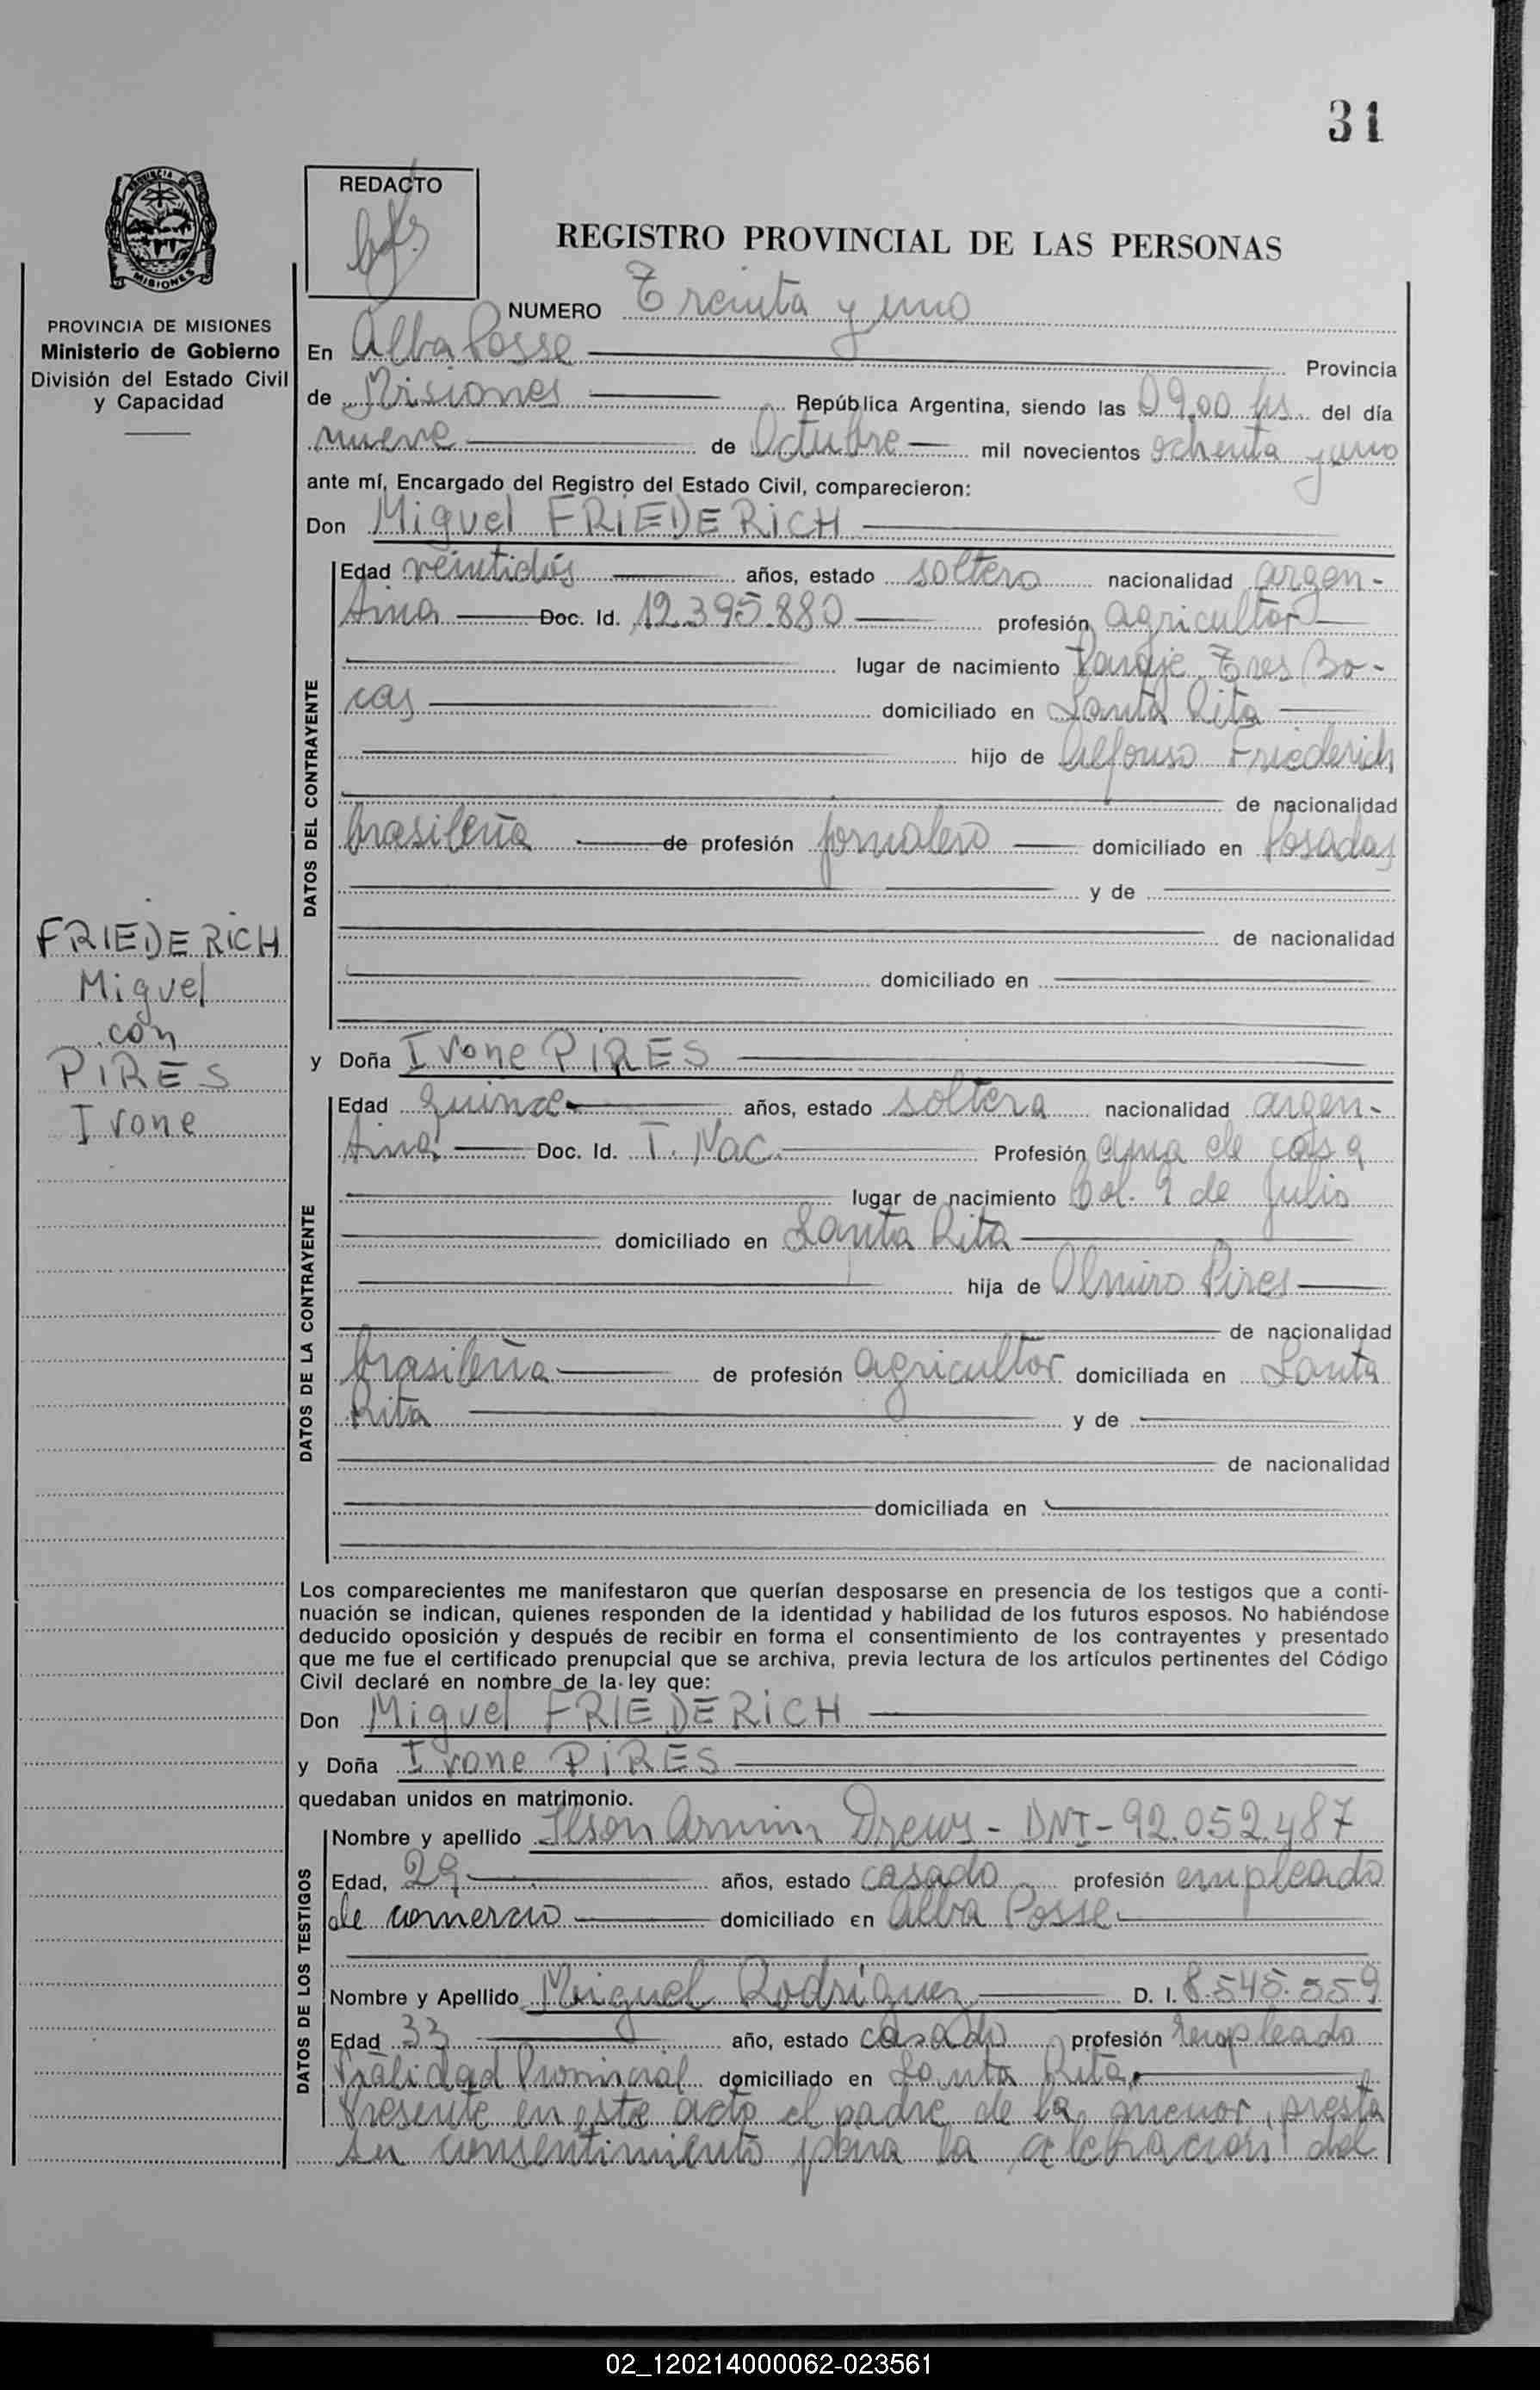 31
REDACTO
REGISTRO PROVINCIAL DE LAS PERSONAS
PROVINCIA DE MISIONES
Ministerio de Gobierno
División del Estado Civil
y Capacidad
NUMERO Treinta y uno
En Alba Posse Provincia
de Misiones República Argentina, siendo las 09,00 hs. del día
nueve de Octubre mil novecientos ochenta y uno
ante mí, Encargado del Registro del Estado Civil, comparecieron:
Don Miguel FRIEDERICH
DATOS DEL CONTRAYENTE
Edad veintidós años, estado soltero nacionalidad argen-
tina Doc. Id. 12.395.880 profesión agricultor
lugar de nacimiento Paraje Tres Bo-
cas domiciliado en Santa Rita
hijo de Alfonso Friederich
de nacionalidad
brasileña de profesión jornalero domiciliado en Posadas
y de
de nacionalidad
domiciliado en
FRIEDERICH
Miguel
con
PIRES
Ivone
y Doña Ivone PIRES
DATOS DE LA CONTRAYENTE
Edad quince años, estado soltera nacionalidad argen-
tina Doc. Id. T. Nac. Profesión ama de casa
lugar de nacimiento Col. 9 de Julio
domiciliado en Santa Rita
hija de Olmiro Pires
de nacionalidad
brasileña de profesión agricultor domiciliada en Santa
Rita y de
de nacionalidad
domiciliada en
Los comparecientes me manifestaron que querían desposarse en presencia de los testigos que a conti-
nuación se indican, quienes responden de la identidad y habilidad de los futuros esposos. No habiéndose
deducido oposición y después de recibir en forma el consentimiento de los contrayentes y presentado
que me fue el certificado prenupcial que se archiva, previa lectura de los artículos pertinentes del Código
Civil declaré en nombre de la ley que:
Don Miguel FRIEDERICH
y Doña Ivone PIRES
quedaban unidos en matrimonio.
DATOS DE LOS TESTIGOS
Nombre y apellido Ilson Armin Drews - DNI - 92.052.487
Edad, 29 años, estado casado profesión empleado
de comercio domiciliado en Alba Posse
Nombre y Apellido Miguel Rodríguez D. I. 8.545.559
Edad 33 año, estado casado profesión empleado
Vialidad Provincial domiciliado en Santa Rita,
Presente en este acto el padre de la menor, presta
su consentimiento para la celebración del
02_120214000062-023561